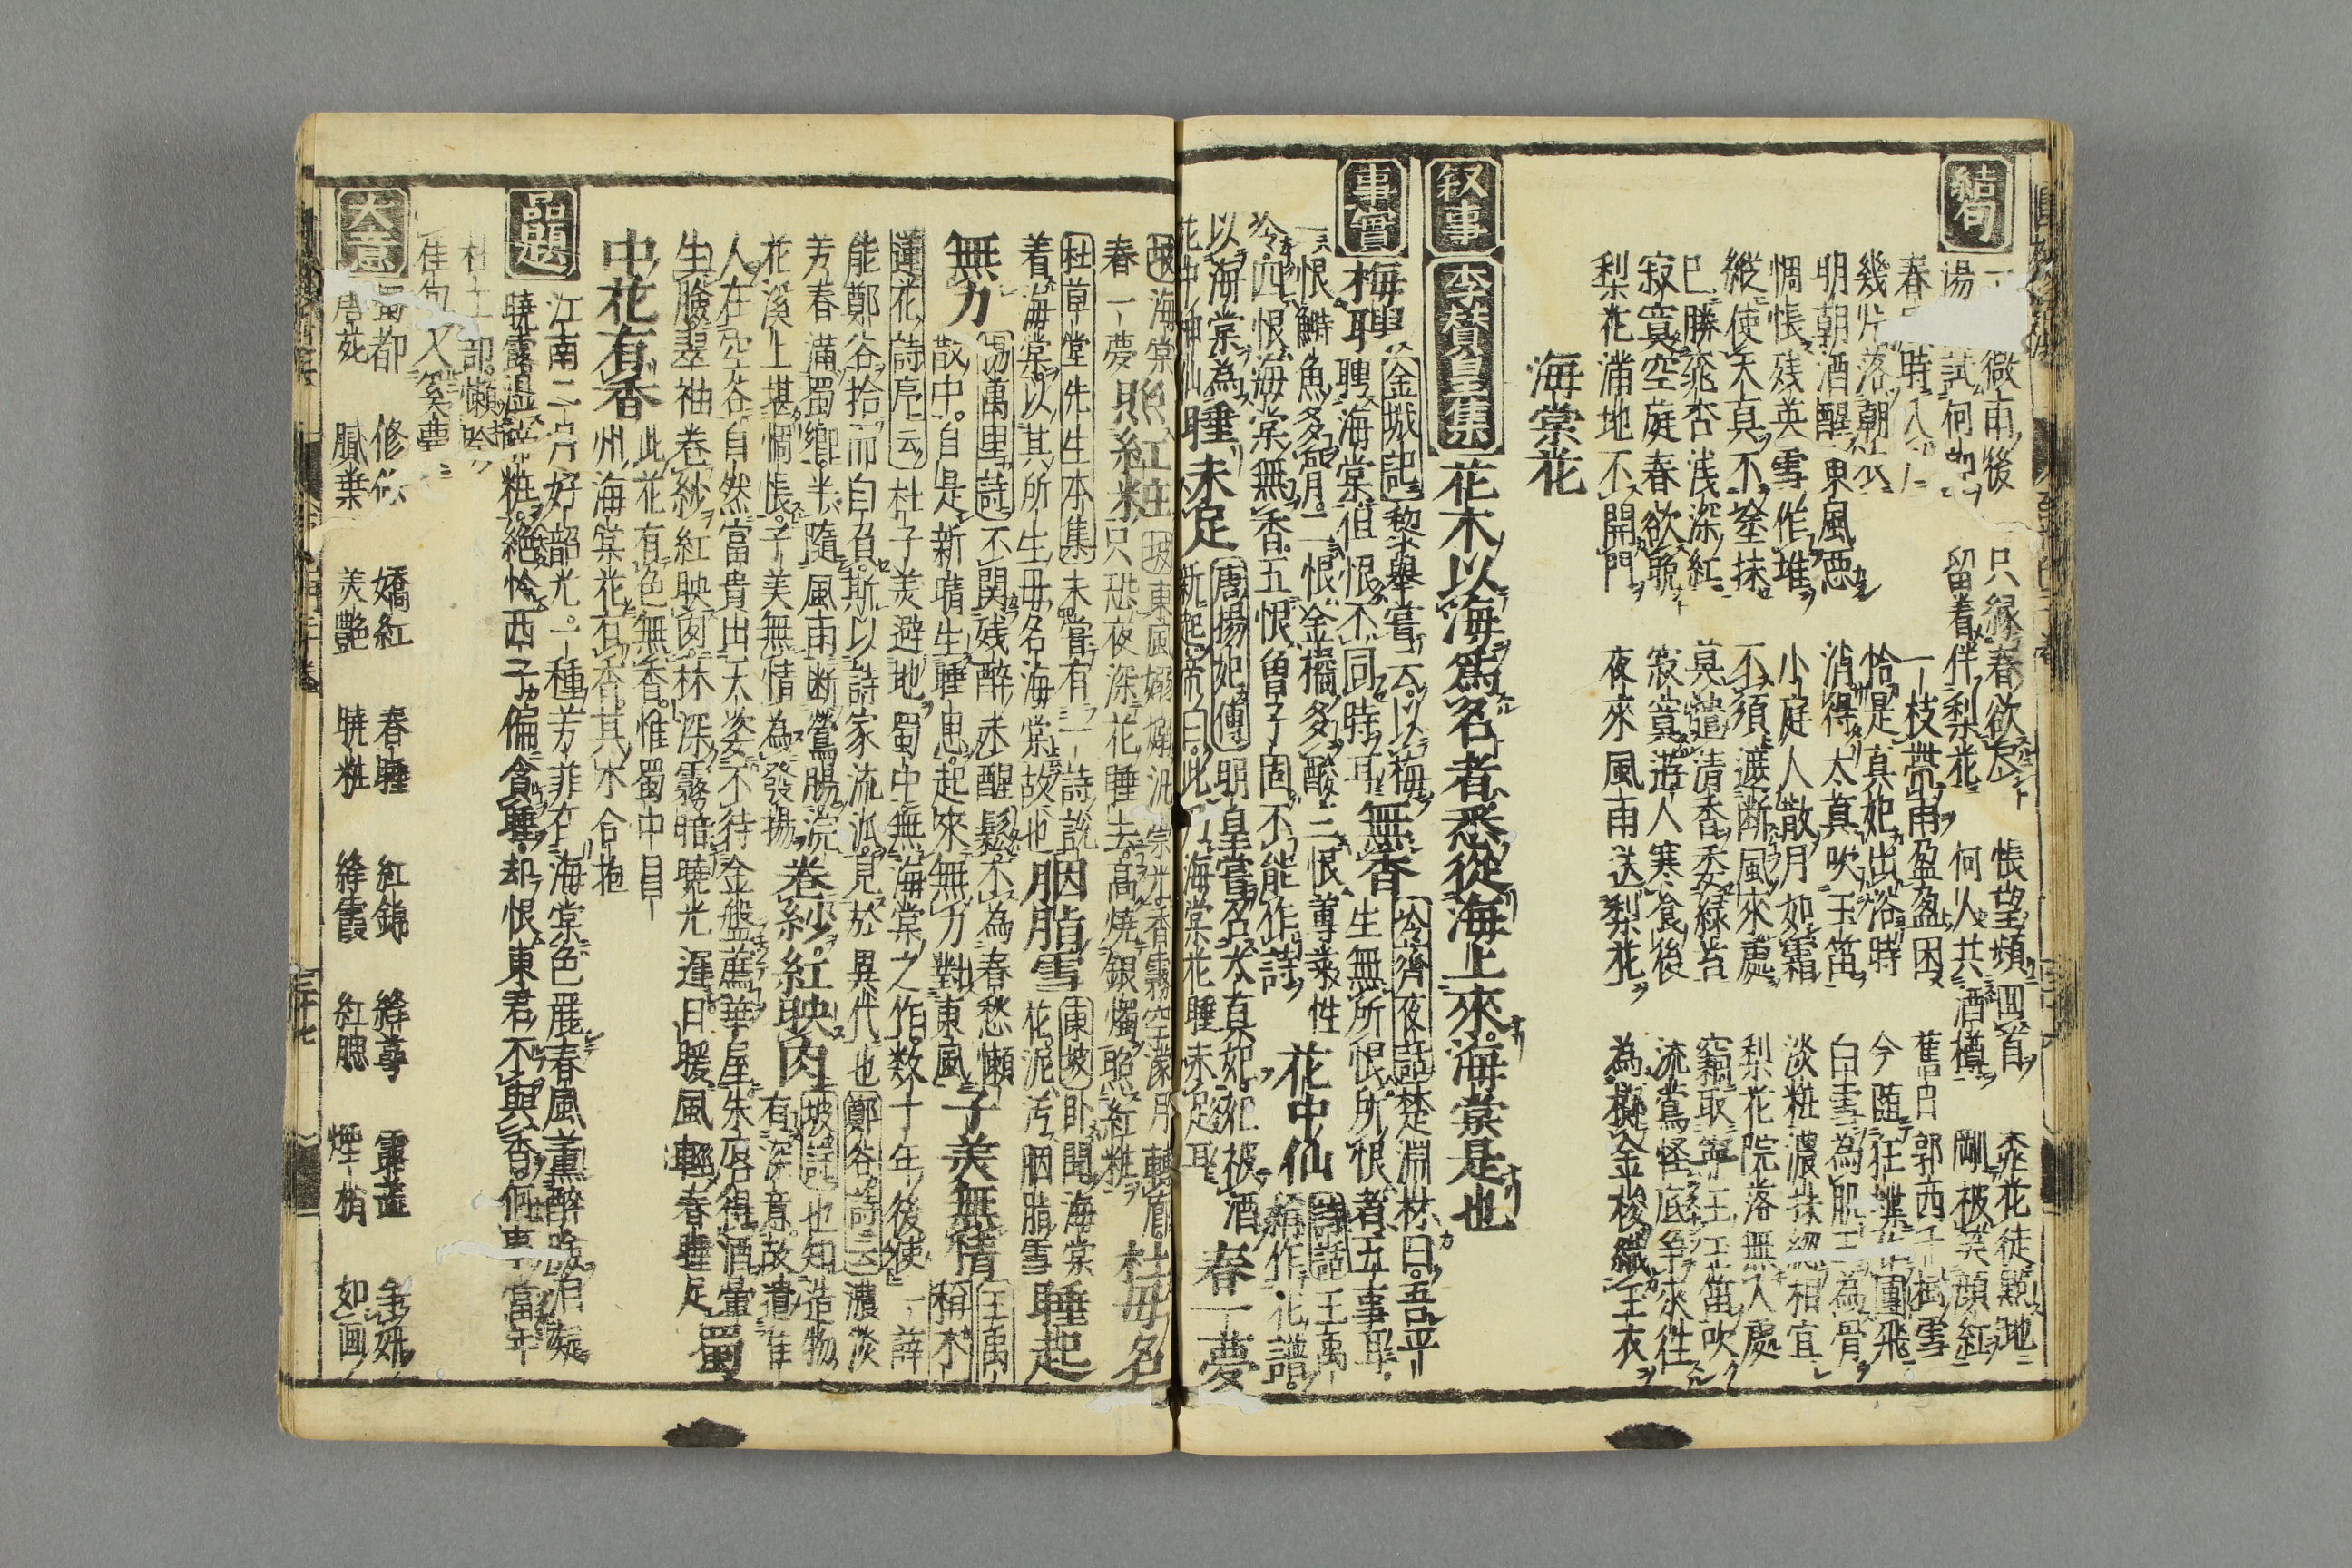 結句
微雨後 只縁春欲尽 悵望頻回首 飛花徒點地
湯 試何如 留着伴梨花 何人共酒樽 剛被笑顔紅
春 時 一枝帶雨盈盈困 舊日郭西千樹雪
幾片落朝 恰是真妃出浴時 今随狂蝶作團飛
明朝酒醒東風悪 消得太真吹玉笛 白雪為肌玉為骨
惆悵残英雪作堆 小庭人散月如霜 淡粧濃抹總相宜
縱使天真不塗抹 不須遮断風來處 梨花院落無人處
已勝飛杏浅深紅 莫遣清香委緑苔 竊取寧王玉笛吹
寂寞空庭春欲晩 寂寞遊人寒食後 流鶯怪底争來往
梨花滿地不開門 夜來風雨送梨花 為擲金梭織玉衣
海棠花
叙事 李賛皇集 花木以海為名者悉從海上來海棠是也
事實 梅聘 金城記 黎舉嘗云以梅
聘海棠但恨不同時耳 無香 冷齋夜話 楚淵材曰吾平
生無所恨所恨者五事耳
一恨鰣魚多骨二恨金橘多酸三恨蓴菜性
冷四恨海棠無香五恨曾子固不能作詩 花中仙 詩話 王禹
偁作花譜
以海棠為
花中神仙 睡未足 唐楊妃傳 明皇嘗召太真妃妃被酒
新起帝曰此 海棠花睡未足耳 春一夢
坡海棠
春一夢 照紅粧 坡 東風嫋嫋汎崇光香霧空濛月轉廊
只恐夜深花睡去高燒銀燭照紅粧 杜母名
杜草堂先生本集 未嘗有一詩説
着海棠以其所生母名海棠故也 胭脂雪 東坡 卧聞海棠
花泥汚胭脂雪 睡起
無力 楊萬里詩 不関残醉未醒鬆不為春愁懶
散中自是新晴生睡思起來無力對東風 子美無情 王禹
稱木
蓮花詩序云 杜子美避地蜀中無海棠之作數十年後使一薛
能鄭谷拾而自負斯以詩家流派見於異代也 鄭谷詩云 濃淡
芳春滿蜀郷半隨風雨断鶯腸浣
花溪上堪惆悵子美無情為發揚 卷紗紅映肉 坡詩 也知造物
有深意故遣佳
人在空谷自然富貴出天姿不待金盤薦華屋朱唇得酒暈
生臉翠袖卷紗紅映肉林深霧暗曉光遲日暖風輕春睡足 蜀
中花有香 此花有色無香惟蜀中昌
州海棠花有香其木合抱
品題 江南二月好韶光一種芳菲在海棠色麗春風薫醉
曉露 粧絶怜西子偏貪睡却恨東君不與香何事當年
杜工部懶吟
佳句又奚
大意 蜀都 嬌紅 春睡 紅錦 絳萼
唐苑 膩葉 美艶 曉粧 絳霞 紅腮 煙梢 如画